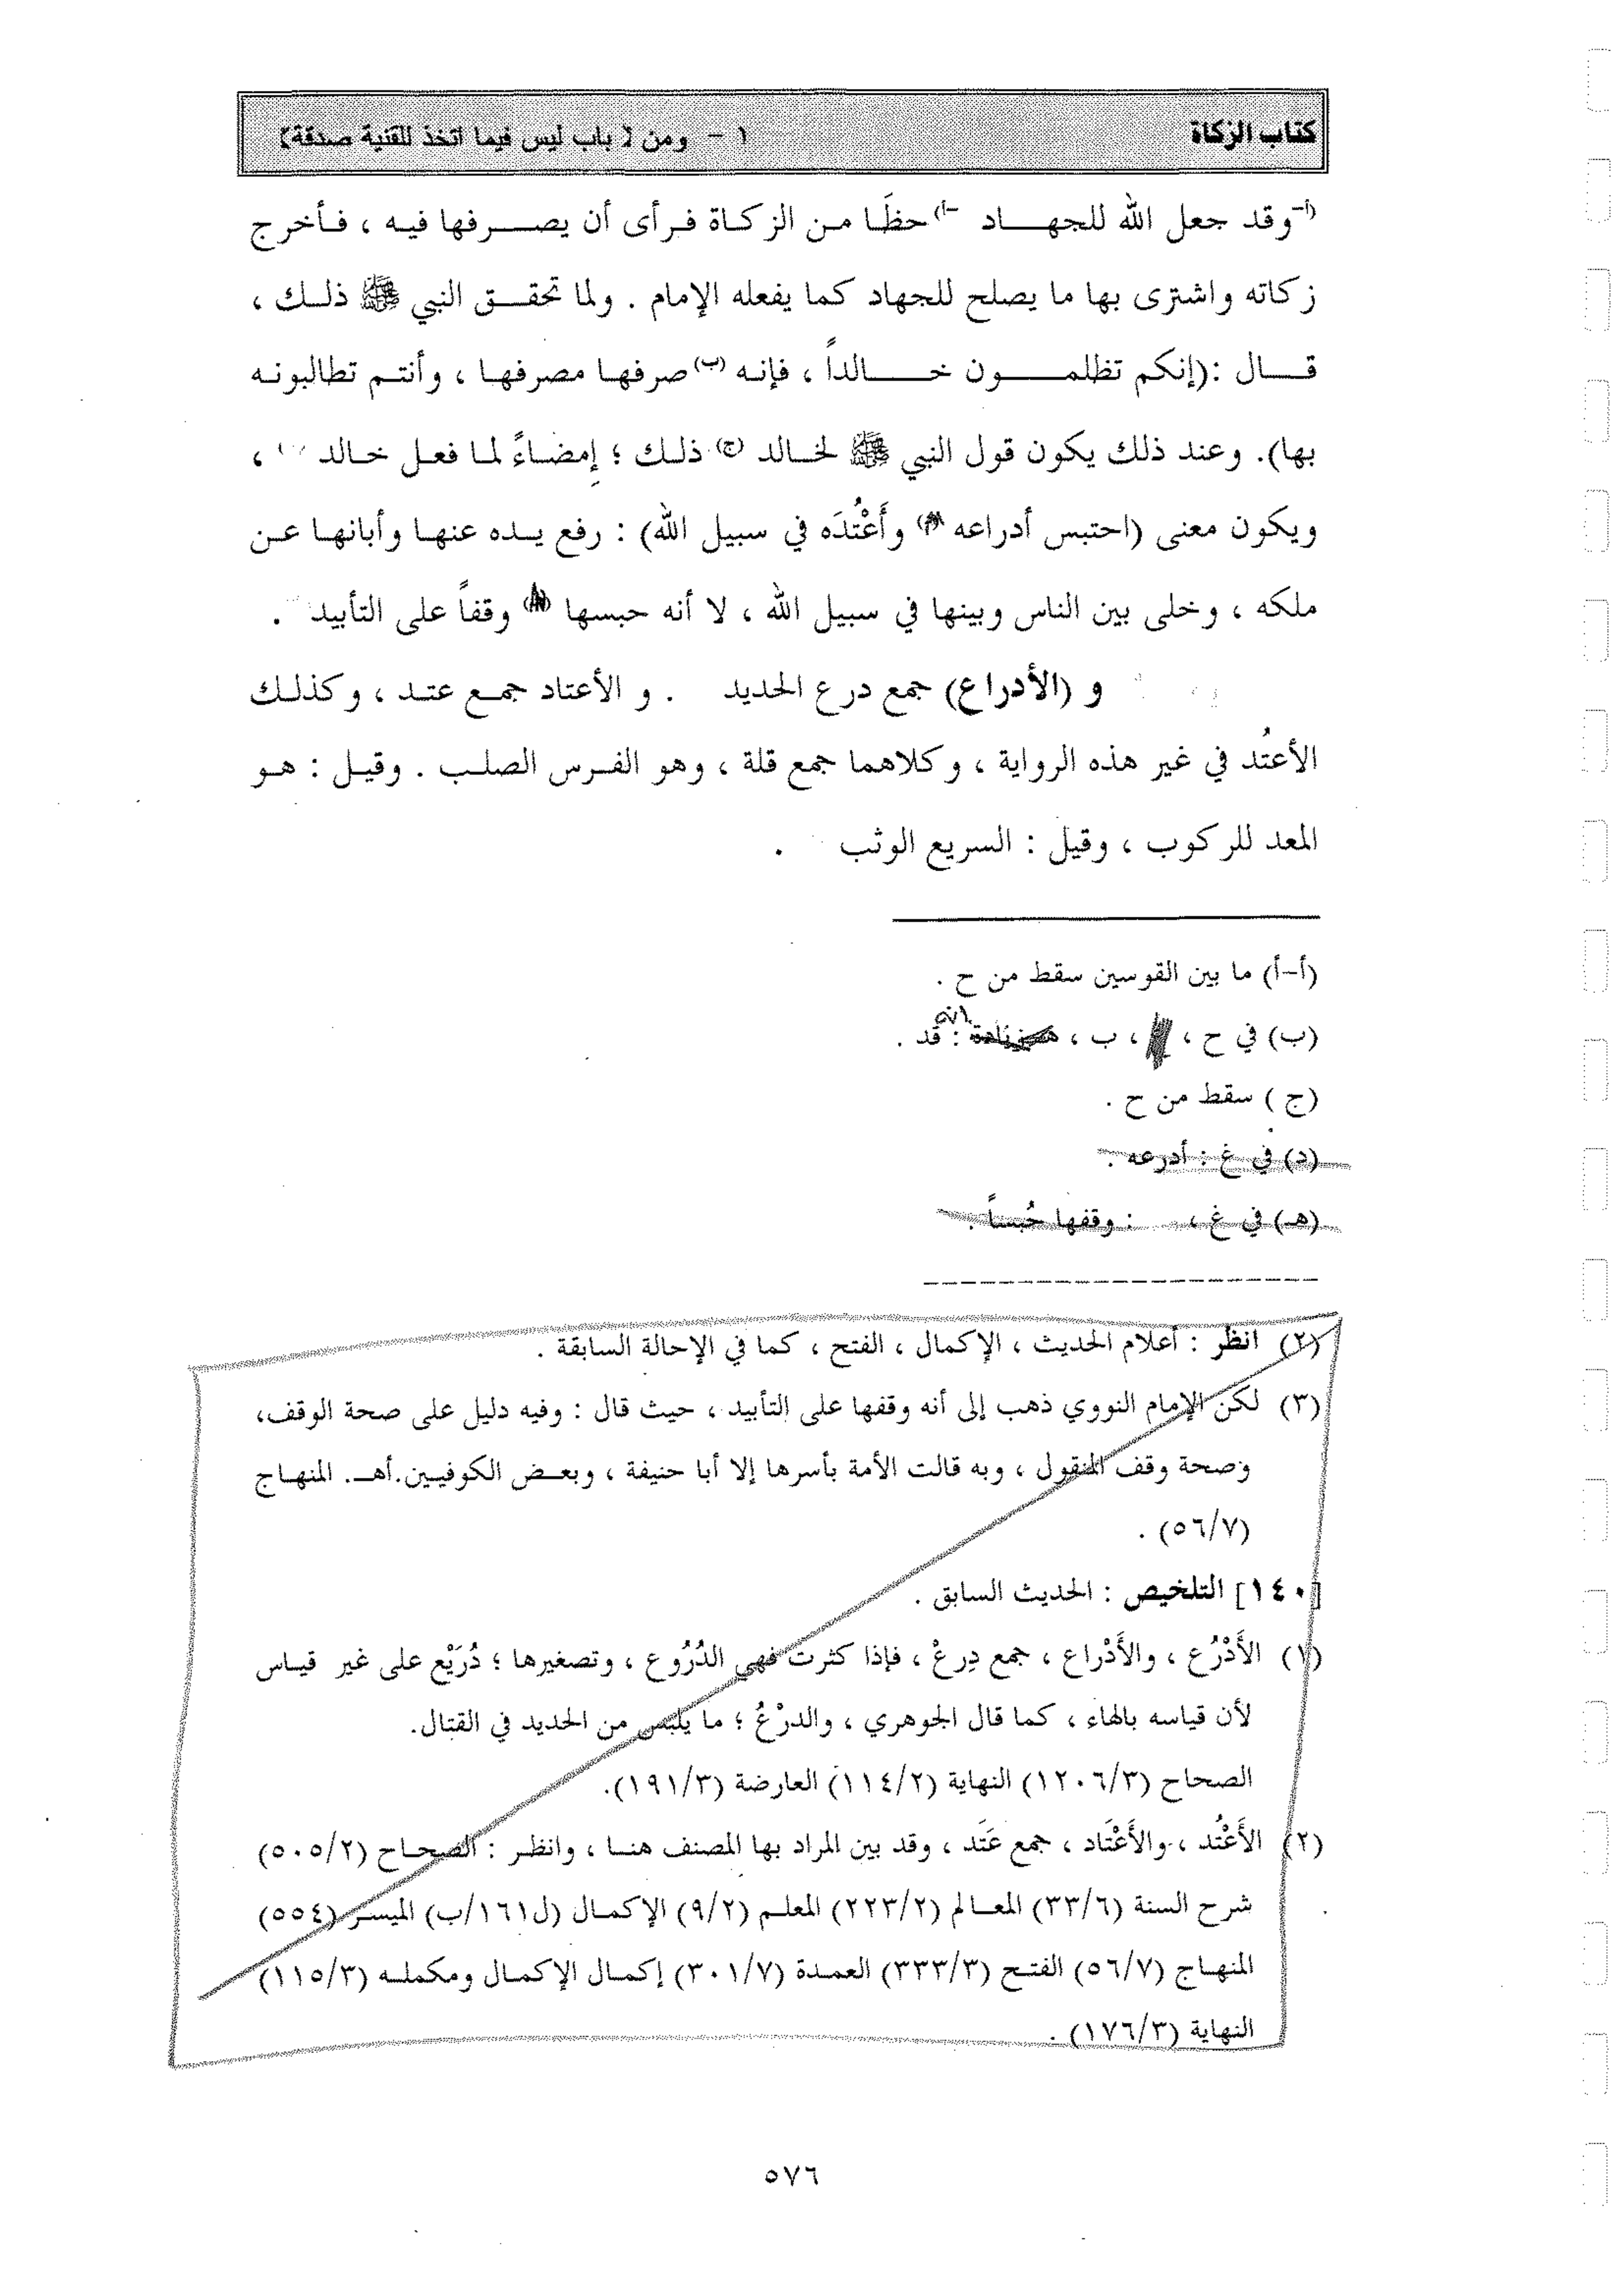 كتاب الزكاة
١ - ومن ( باب ليس فيما اتخذ للقنية صدقة)
(أ-وقد جعل الله للجهاد -أ) حظًا من الزكاة فرأى أن يصرفها فيه ، فأخرج
زكاته واشترى بها ما يصلح للجهاد كما يفعله الإمام . ولما تحقق النبي ﷺ ذلك ،
قال :(إنكم تظلمون خالداً ، فإنه (ب) صرفها مصرفها ، وأنتم تطالبونه
بها). وعند ذلك يكون قول النبي ﷺ لخالد (ج) ذلك ؛ إمضاءً لما فعل خالد ،
ويكون معنى (احتبس أدراعه وأَعْتُدَه في سبيل الله) : رفع يده عنها وأبانها عن
ملكه ، وخلى بين الناس وبينها في سبيل الله ، لا أنه حبسها وقفاً على التأبيد .
و (الأدراع) جمع درع الحديد . و الأعتاد جمع عتد ، وكذلك
الأعتُد في غير هذه الرواية ، وكلاهما جمع قلة ، وهو الفرس الصلب . وقيل : هو
المعد للركوب ، وقيل : السريع الوثب .
(أ-أ) ما بين القوسين سقط من ح .
(ب) في ح ، ، ب ، : قد .
(ج ) سقط من ح .
(د) في غ : أدرعه .
(هـ) في غ ، : وقفها حُبساً .
(٢) انظر : أعلام الحديث ، الإكمال ، الفتح ، كما في الإحالة السابقة .
(٣) لكن الإمام النووي ذهب إلى أنه وقفها على التأبيد ، حيث قال : وفيه دليل على صحة الوقف،
وصحة وقف المنقول ، وبه قالت الأمة بأسرها إلا أبا حنيفة ، وبعض الكوفيين.أهـ. المنهاج
(٥٦/٧) .
[١٤٠] التلخيص : الحديث السابق .
(١) الأَدْرُع ، والأَدْراع ، جمع دِرعْ ، فإذا كثرت فهي الدُرُوع ، وتصغيرها ؛ دُرَيْع على غير قياس
لأن قياسه بالهاء ، كما قال الجوهري ، والدرْعُ ؛ ما يلبس من الحديد في القتال.
الصحاح (١٢٠٦/٣) النهاية (١١٤/٢) العارضة (١٩١/٣).
(٢) الأَعْتُد ، والأَعْتَاد ، جمع عَتَد ، وقد بين المراد بها المصنف هنا ، وانظر : الصحاح (٥٠٥/٢)
شرح السنة (٣٣/٦) المعالم (٢٢٣/٢) المعلم (٩/٢) الإكمال (ل١٦١/ب) الميسر (٥٥٤)
المنهاج (٥٦/٧) الفتح (٣٣٣/٣) العمدة (٣٠١/٧) إكمال الإكمال ومكمله (١١٥/٣)
النهاية (١٧٦/٣) .
٥٧٦